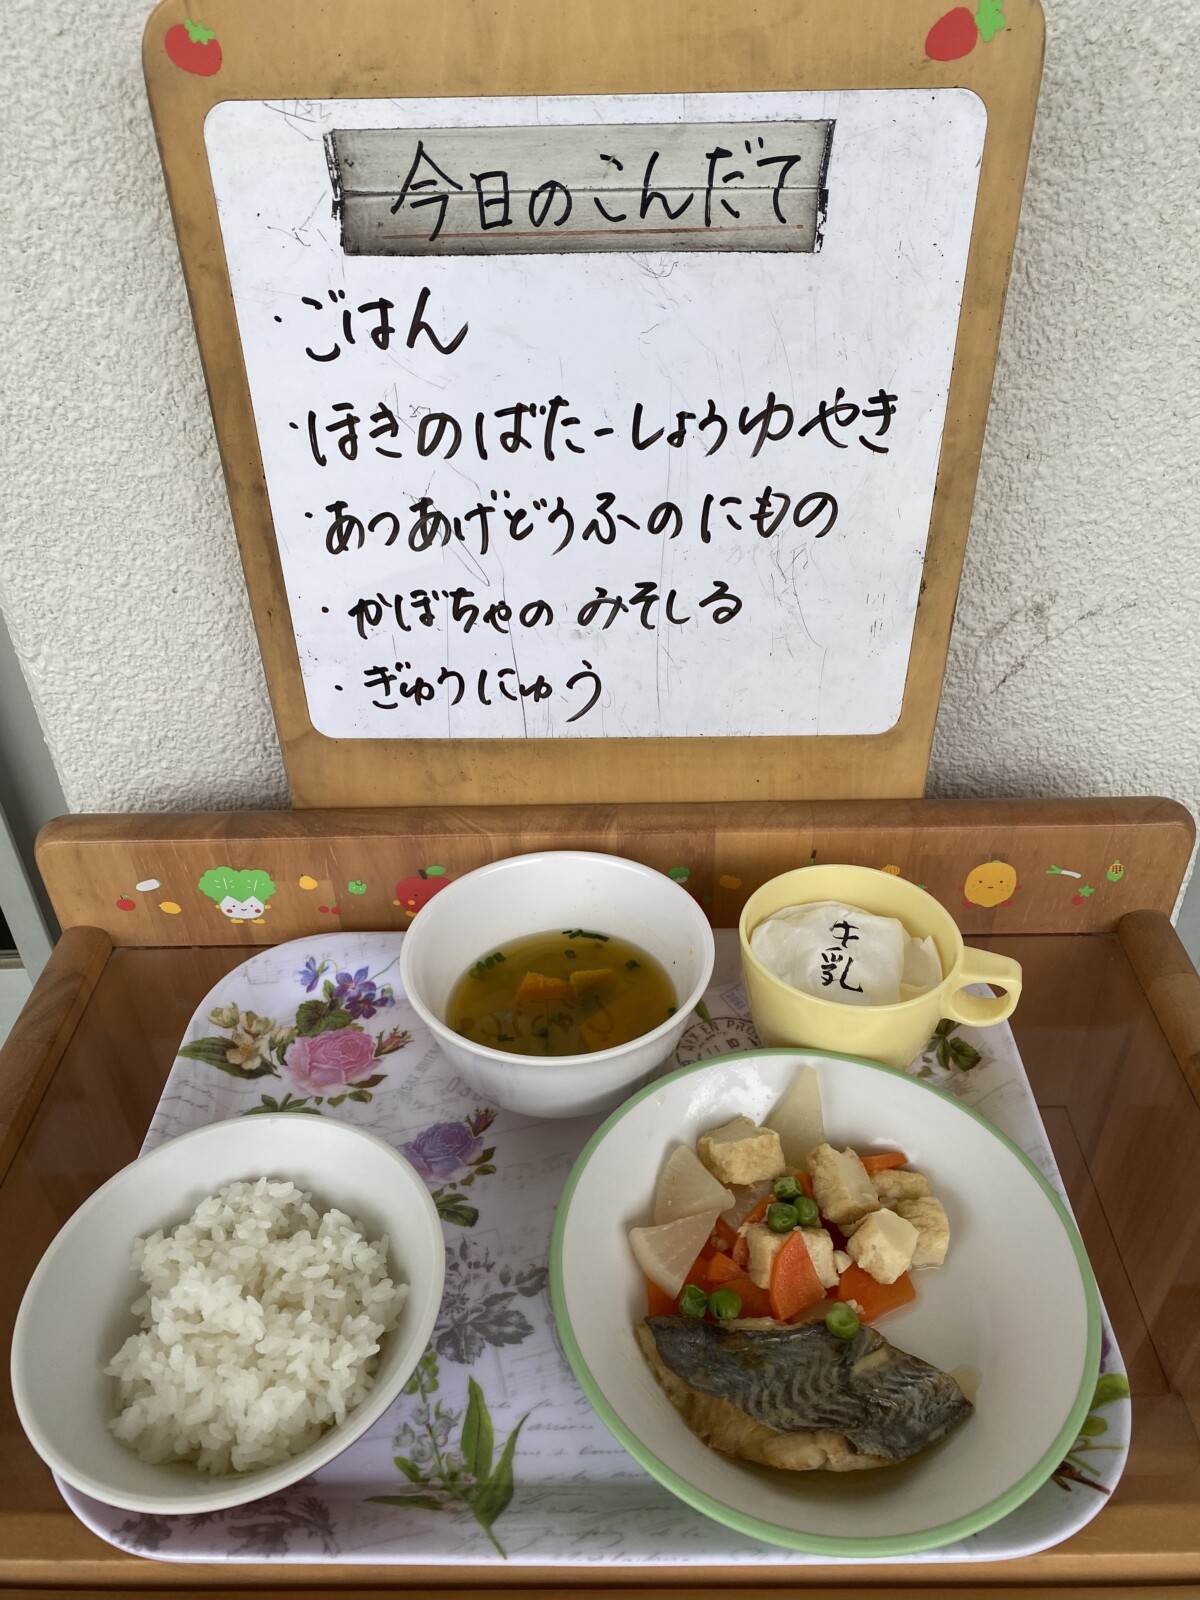 今日のこんだて
・ごはん
・ほきのばたーしょうゆやき
・あつあげどうふのにもの
・かぼちゃのみそしる
・ぎゅうにゅう
牛乳